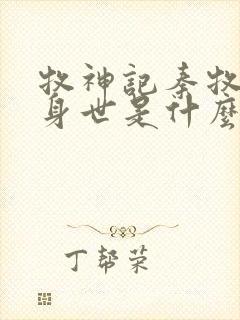 牧神記秦牧
身世是什麼
丁帮荣